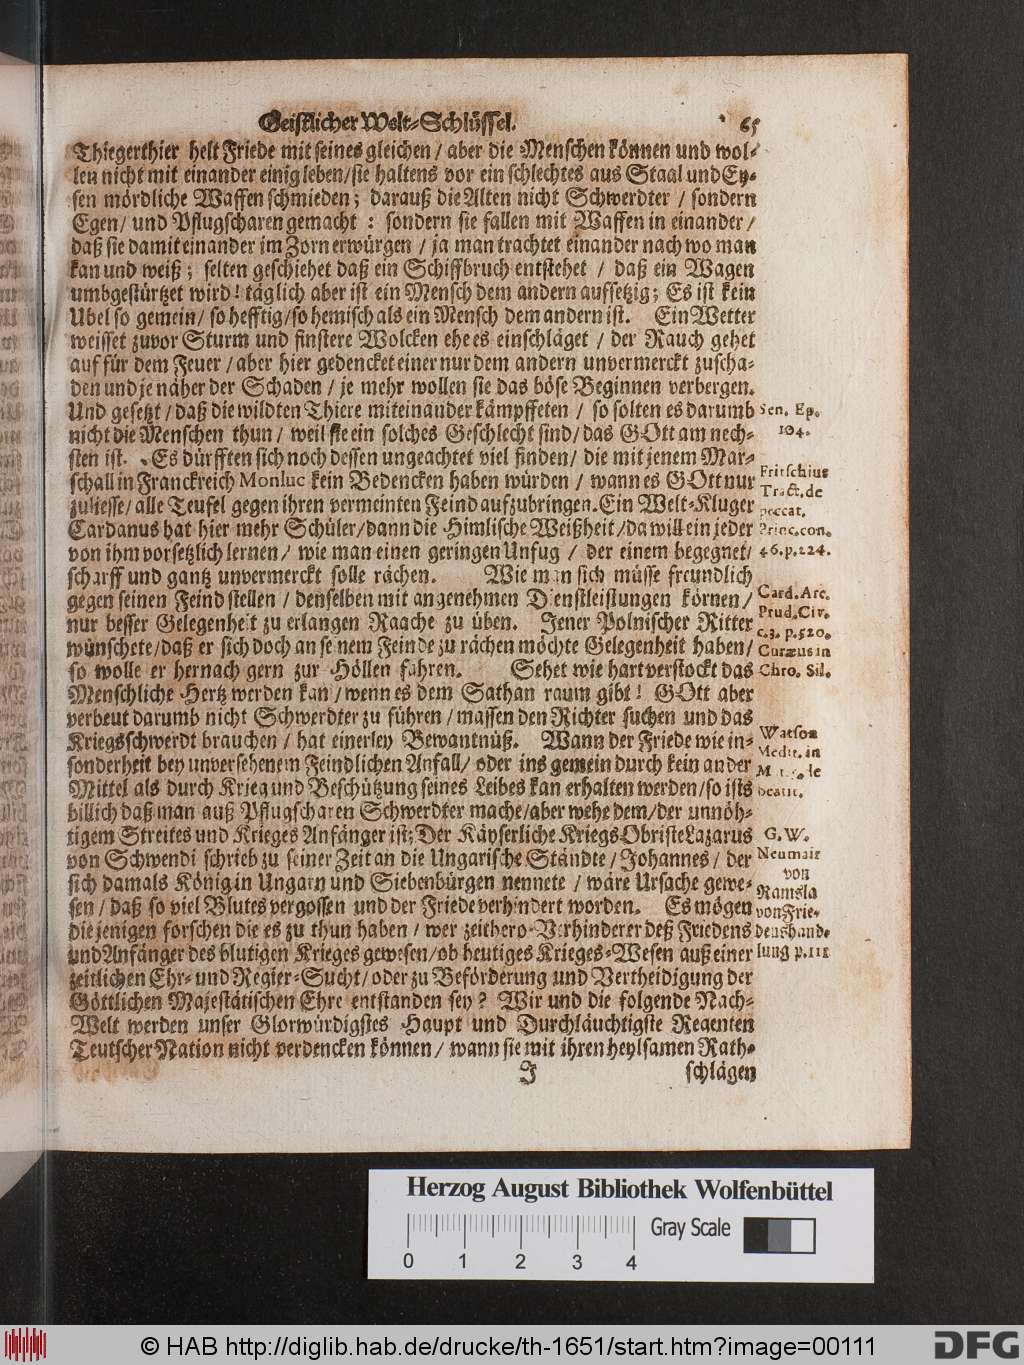 Geistlicher Welt-Schlüssel. 65
Thiegerthier helt Friede mit seines gleichen / aber die Menschen können und wol-
len nicht mit einander einig leben/sie haltens vor ein schlechtes aus Staal und Ey-
sen mördliche Waffen schmieden; darauß die Alten nicht Schwerdter / sondern
Egen/ und Pflugscharen gemacht : sondern sie fallen mit Waffen in einander /
daß sie damit einander im Zorn erwürgen / ja man trachtet einander nach wo man
kan und weiß; selten geschiehet daß ein Schiffbruch entstehet / daß ein Wagen
umbgestürtzet wird! täglich aber ist ein Mensch dem andern auffsetzig; Es ist kein
Ubel so gemein/ so hefftig/so hemisch als ein Mensch dem andern ist. Ein Wetter
weisset zuvor Sturm und finstere Wolcken ehe es einschläget / der Rauch gehet
auf für dem Feuer / aber hier gedencket einer nur dem andern unvermerckt zuscha-
den und je näher der Schaden / je mehr wollen sie das böse Beginnen verbergen.
Und gesetzt / daß die wildten Thiere miteinander kämpffeten / so solten es darumb
nicht die Menschen thun / weil sie ein solches Geschlecht sind/das GOtt am nech-
sten ist. Es dürfften sich noch dessen ungeachtet viel finden/ die mit jenem Mar-
schall in Franckreich Monluc kein Bedencken haben würden / wann es GOtt nur
zuliesse/alle Teufel gegen ihren vermeinten Feind aufzubringen. Ein Welt-Kluger
Cardanus hat hier mehr Schüler/dann die Himlische Weißheit/da will ein jeder
von ihm vorsetzlich lernen / wie man einen geringen Unfug / der einem begegnet/
scharff und gantz unvermerckt solle rächen. Wie man sich müsse freundlich
gegen seinen Feind stellen / denselben mit angenehmen Dienstleistungen körnen /
nur besser Gelegenheit zu erlangen Raache zu üben. Jener Polnischer Ritter
wünschete/daß er sich doch an seinem Feinde zu rächen möchte Gelegenheit haben/
so wolle er hernach gern zur Höllen fahren. Sehet wie hart verstockt das
Menschliche Hertz werden kan / wenn es dem Sathan raum gibt! GOtt aber
verbeut darumb nicht Schwerdter zu führen / massen den Richter suchen und das
Kriegsschwerdt brauchen / hat einerley Bewantnüß. Wann der Friede wie in-
sonderheit bey unversehenem Feindlichen Anfall/ oder ins gemein durch kein ander
Mittel als durch Krieg und Beschützung seines Leibes kan erhalten werden/so ists
billich daß man auß Pflugscharen Schwerdter mache/aber wehe dem/der unnöh-
tigem Streites und Krieges Anfänger ist; Der Käyserliche Kriegs Obriste Lazarus
von Schwendi schrieb zu seiner Zeit an die Ungarische Ständte / Johannes / der
sich damals König in Ungarn und Siebenbürgen nennete / wäre Ursache gewe-
sen / daß so viel Blutes vergossen und der Friede verhindert worden. Es mögen
die jenigen forschen die es zu thun haben / wer zeithero Verhinderer deß Friedens
und Anfänger des blutigen Krieges gewesen/ob heutiges Krieges-Wesen auß einer
zeitlichen Ehr- und Regier-Sucht / oder zu Beförderung und Vertheidigung der
Göttlichen Majestätischen Ehre entstanden sey? Wir und die folgende Nach-
Welt werden unser Glorwürdigstes Haupt und Durchläuchtigste Regenten
Teutscher Nation nicht verdencken können / wann sie mit ihren heylsamen Rath-
J schlägen
Sen. Ep.
104.
Fritschius
Tract. de
peccat.
Princ. con.
46. p. 224.
Card. Arc.
Prud. Civ.
c. 3. p. 520.
Curæus in
Chro. Sil.
Watson
Medit. in
de
beatit.
G. W.
Neumair
von
Ramsla
von Frie-
denshand-
lung p. 111
Herzog August Bibliothek Wolfenbüttel
Gray Scale
0 1 2 3 4
© HAB http://diglib.hab.de/drucke/th-1651/start.htm?image=00111
DFG